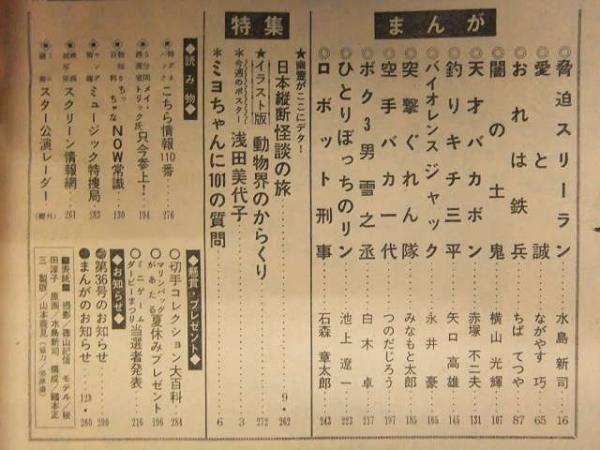 まんが
◎脅迫スリーラン 水島新司 16
◎愛と誠 ながやす巧 65
◎おれは鉄兵 ちばてつや 87
◎闇の土鬼 横山光輝 107
◎天才バカボン 赤塚不二夫 131
◎釣りキチ三平 矢口高雄 145
◎バイオレンスジャック 永井豪 165
◎突撃ぐれん隊 みなもと太郎 185
◎空手バカ一代 つのだじろう 197
◎ボク3男雪之丞 白木卓 217
◎ひとりぼっちのリン 池上遼一 223
◎ロボット刑事 石森章太郎 243
特集
★幽霊がここにデタ!
日本縦断怪談の旅 9・262
★イラスト版 動物界のからくり 272
☆今週のポスター 浅田美代子 3
★ミヨちゃんに101の質問 6
◆読み物◆
こちら情報110番 276
メイ・トリック氏 只今参上! 194
ちゃちな NOW常識 130
ミュージック特捜局 283
スクリーン情報網 261
スター公演レーダー (欄外)
◆懸賞・プレゼント◆
○切手コレクション大百科 284
○マリンバッグがあたる 夏休みプレゼント 196
○ミニゲームダービーまつり 当選者発表 216
◆お知らせ◆
●第36号のお知らせ 290
●まんがのお知らせ 128・280
■表紙■ 撮影/篠山紀信 モデル/桜
田淳子 原画/水島新司 構成/鏑木正
三 製版/山本